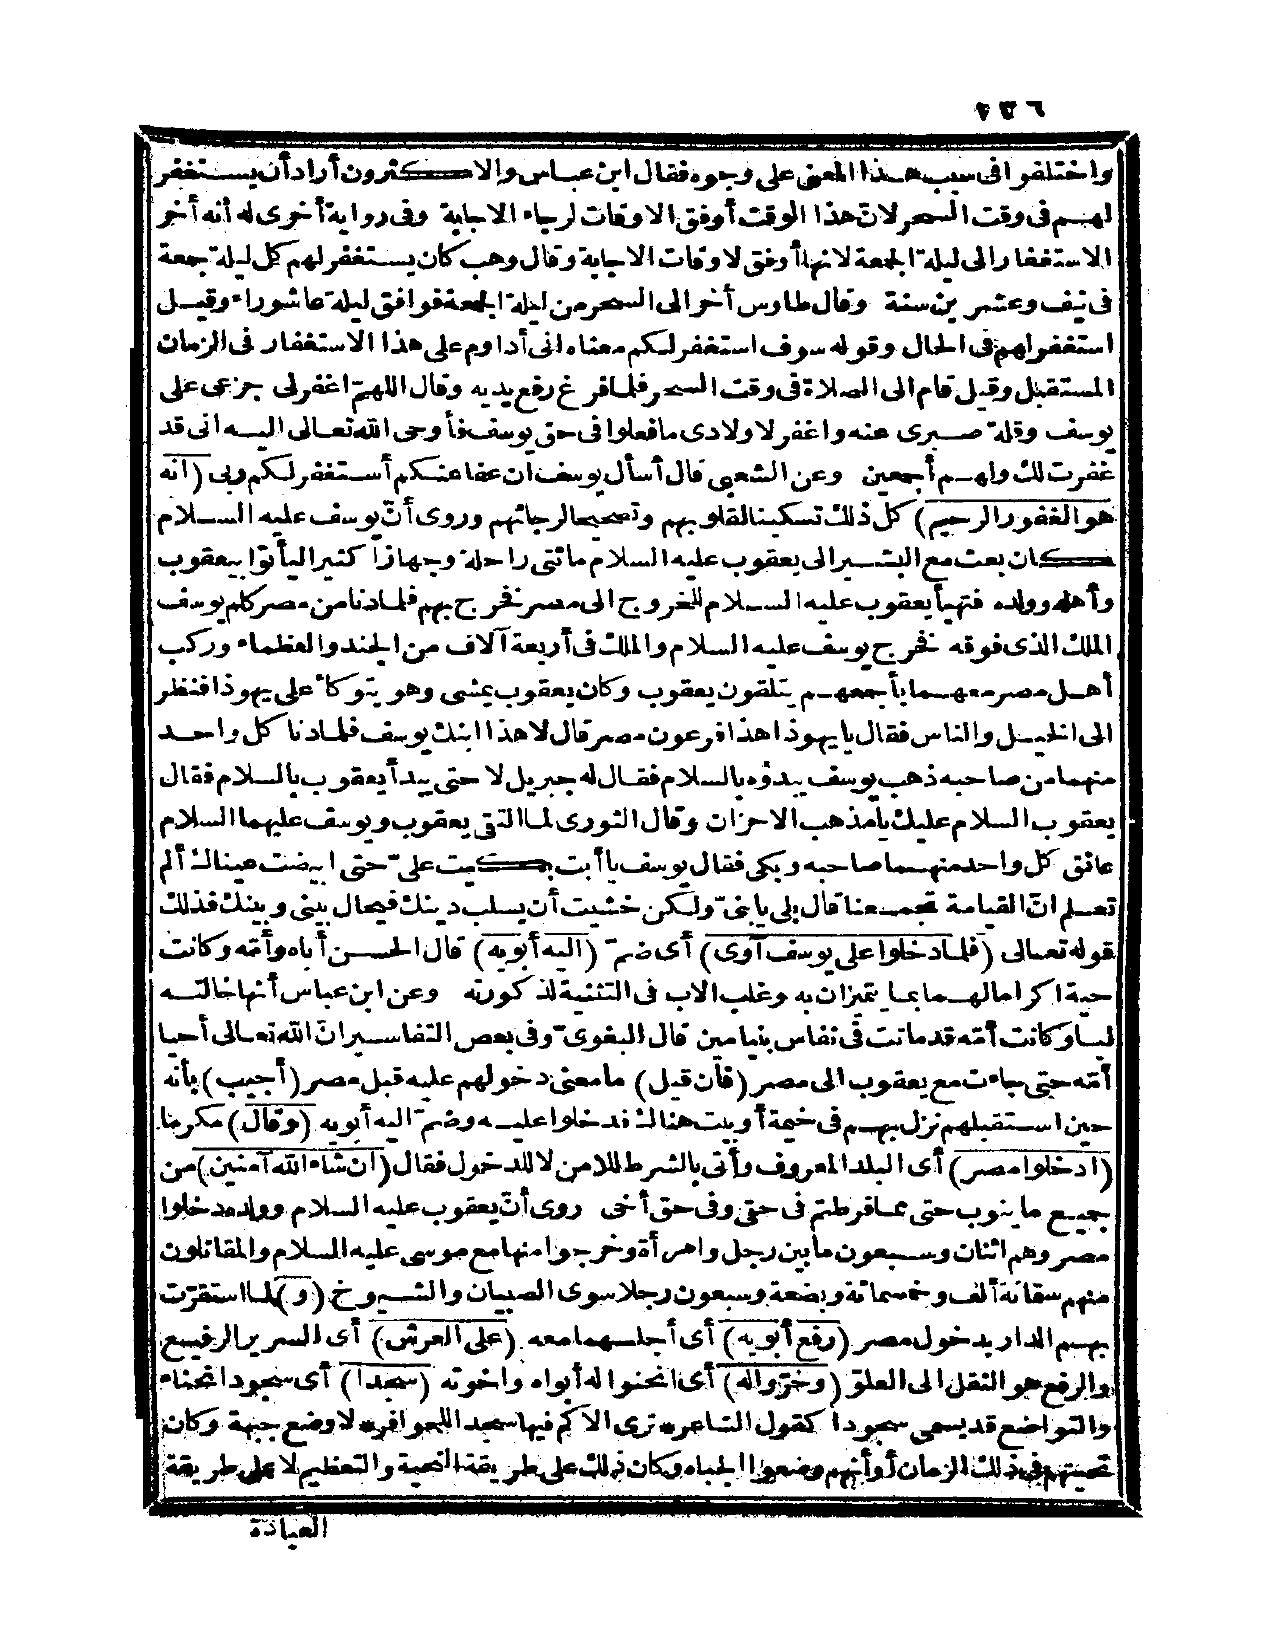 ١٣٦
واختلفوا فى سبب هذا المعنى على وجوه فقال ابن عباس والاكثرون أراد أن يستغفر
لهم فى وقت السحر لانّ هذا الوقت أوفق الاوقات لرجاء الاجابة وفى رواية أخرى له أنه أخر
الاستغفار الى ليلة الجمعة لانها أوفق لاوقات الاجابة وقال وهب كان يستغفر لهم كل ليلة جمعة
فى نيف وعشرين سنة وقال طاوس أخر الى السحر من ليلة الجمعة فوافق ليلة عاشوراء وقيل
استغفر لهم فى الحال وقوله سوف استغفر لكم معناه انى أداوم على هذا الاستغفار فى الزمان
المستقبل وقيل قام الى الصلاة فى وقت السحر فلما فرغ رفع يديه وقال اللهمّ اغفر لى جزعى على
يوسف وقلة صبرى عنه واغفر لاولادى ما فعلوا فى حق يوسف فأوحى الله تعالى اليه انى قد
غفرت لك ولهم أجمعين وعن الشعبى قال أسأل يوسف ان عفا عنكم أستغفر لكم ربى (انه
هو الغفور الرحيم) كل ذلك تسكينا لقلوبهم وتصحيحا لرجائهم وروى أنّ يوسف عليه السلام
كان بعث مع البشير الى يعقوب عليه السلام مائتى راحلة وجهازا كثيرا ليأتوا بيعقوب
وأهله وولده فتهيأ يعقوب عليه السلام للخروج الى مصر فخرج بهم فلما دنا من مصر كلم يوسف
الملك الذى فوقه فخرج يوسف عليه السلام والملك فى أربعة آلاف من الجند والعظماء وركب
أهل مصر معهما بأجمعهم يتلقون يعقوب وكان يعقوب يمشى وهو يتوكأ على يهوذا فنظر
الى الخيل والناس فقال يا يهوذا هذا فرعون مصر قال لا هذا ابنك يوسف فلما دنا كل واحد
منهما من صاحبه ذهب يوسف يبدؤه بالسلام فقال له جبريل لا حتى يبدأ يعقوب بالسلام فقال
يعقوب السلام عليك يا مذهب الاحزان وقال الثورى لما التقى يعقوب ويوسف عليهما السلام
عانق كل واحد منهما صاحبه وبكى فقال يوسف يا أبت بكيت علىّ حتى ابيضت عيناك ألم
تعلم انّ القيامة تجمعنا قال بلى يا بنىّ ولكن خشيت أن يسلب دينك فيحال بينى وبينك فذلك
قوله تعالى (فلما دخلوا على يوسف آوى) أى ضمّ (اليه أبويه) قال الحسن أباه وأمّه وكانت
حية اكراما لهما بما يتميزان به وغلب الاب فى التثنية لذكورته وعن ابن عباس أنها خالته
ليا وكانت أمّه قد ماتت فى نفاس بنيامين قال البغوىّ وفى بعض التفاسير انّ الله تعالى أحيا
أمّه حتى جاءت مع يعقوب الى مصر (فان قيل) ما معنى دخولهم عليه قبل مصر (أجيب) بأنه
حين استقبلهم نزل بهم فى خيمة أو بيت هناك فدخلوا عليه وضمّ اليه أبويه (وقال) مكرما
(ادخلوا مصر) أى البلد المعروف وأتى بالشرط للامن لا للدخول فقال (ان شاء الله آمنين) من
جميع ما ينوب حتى مما فرطتم فى حقى وفى حق أخى روى أنّ يعقوب عليه السلام وولده دخلوا
مصر وهم اثنان وسبعون ما بين رجل وامرأة وخرجوا منها مع موسى عليه السلام والمقاتلون
منهم ستمائة ألف وخمسمائة وبضعة وسبعون رجلا سوى الصبيان والشيوخ (و) لما استقرّت
بهم الدار بدخول مصر (رفع أبويه) أى أجلسهما معه (على العرش) أى السرير الرفيع
والرفع هو النقل الى العلوّ (وخرّوا له) أى انحنوا له أبواه واخوته (سجدا) أى سجود انحناء
والتواضع قد يسمى سجودا كقول الشاعر ترى الاكم فيها سجدا للحوافر لا وضع جبهة وكان
تحيتهم فى ذلك الزمان أو أنهم وضعوا الجباه وكان ذلك على طريقة التحية والتعظيم لا على طريقة
العبادة